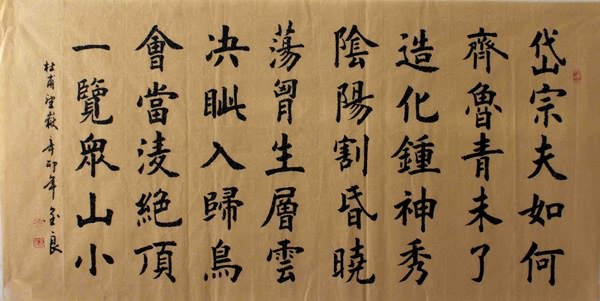 岱宗夫如何
齊魯青未了
造化鍾神秀
陰陽割昏曉
蕩胷生層雲
决眦入歸鳥
會當淩絕頂
一覽眾山小
杜甫望嶽 辛卯年 良